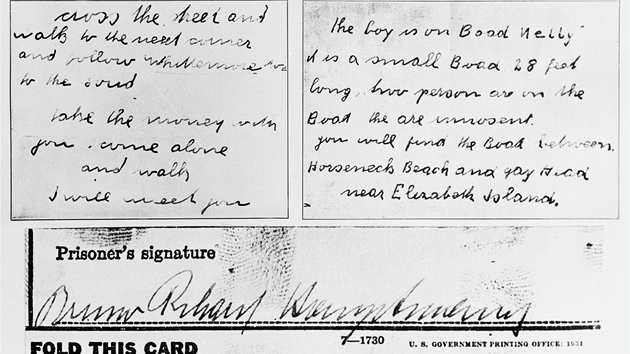 cross the street and
walk to the next corner
and follow whittemore
to the soud
take the money with
you. come alone
and walk
I will meet you
the boy is on Boad Nelly
it is a small Boad 28 feet
long, two person are on the
Boad the are innosent.
you will find the Boad between
Horseneck Beach and gay Head
near Elizabeth Island.
Prisoner's signature
Bruno Richard Hauptmann
7—1730 U. S. GOVERNMENT PRINTING OFFICE: 1931
FOLD THIS CARD